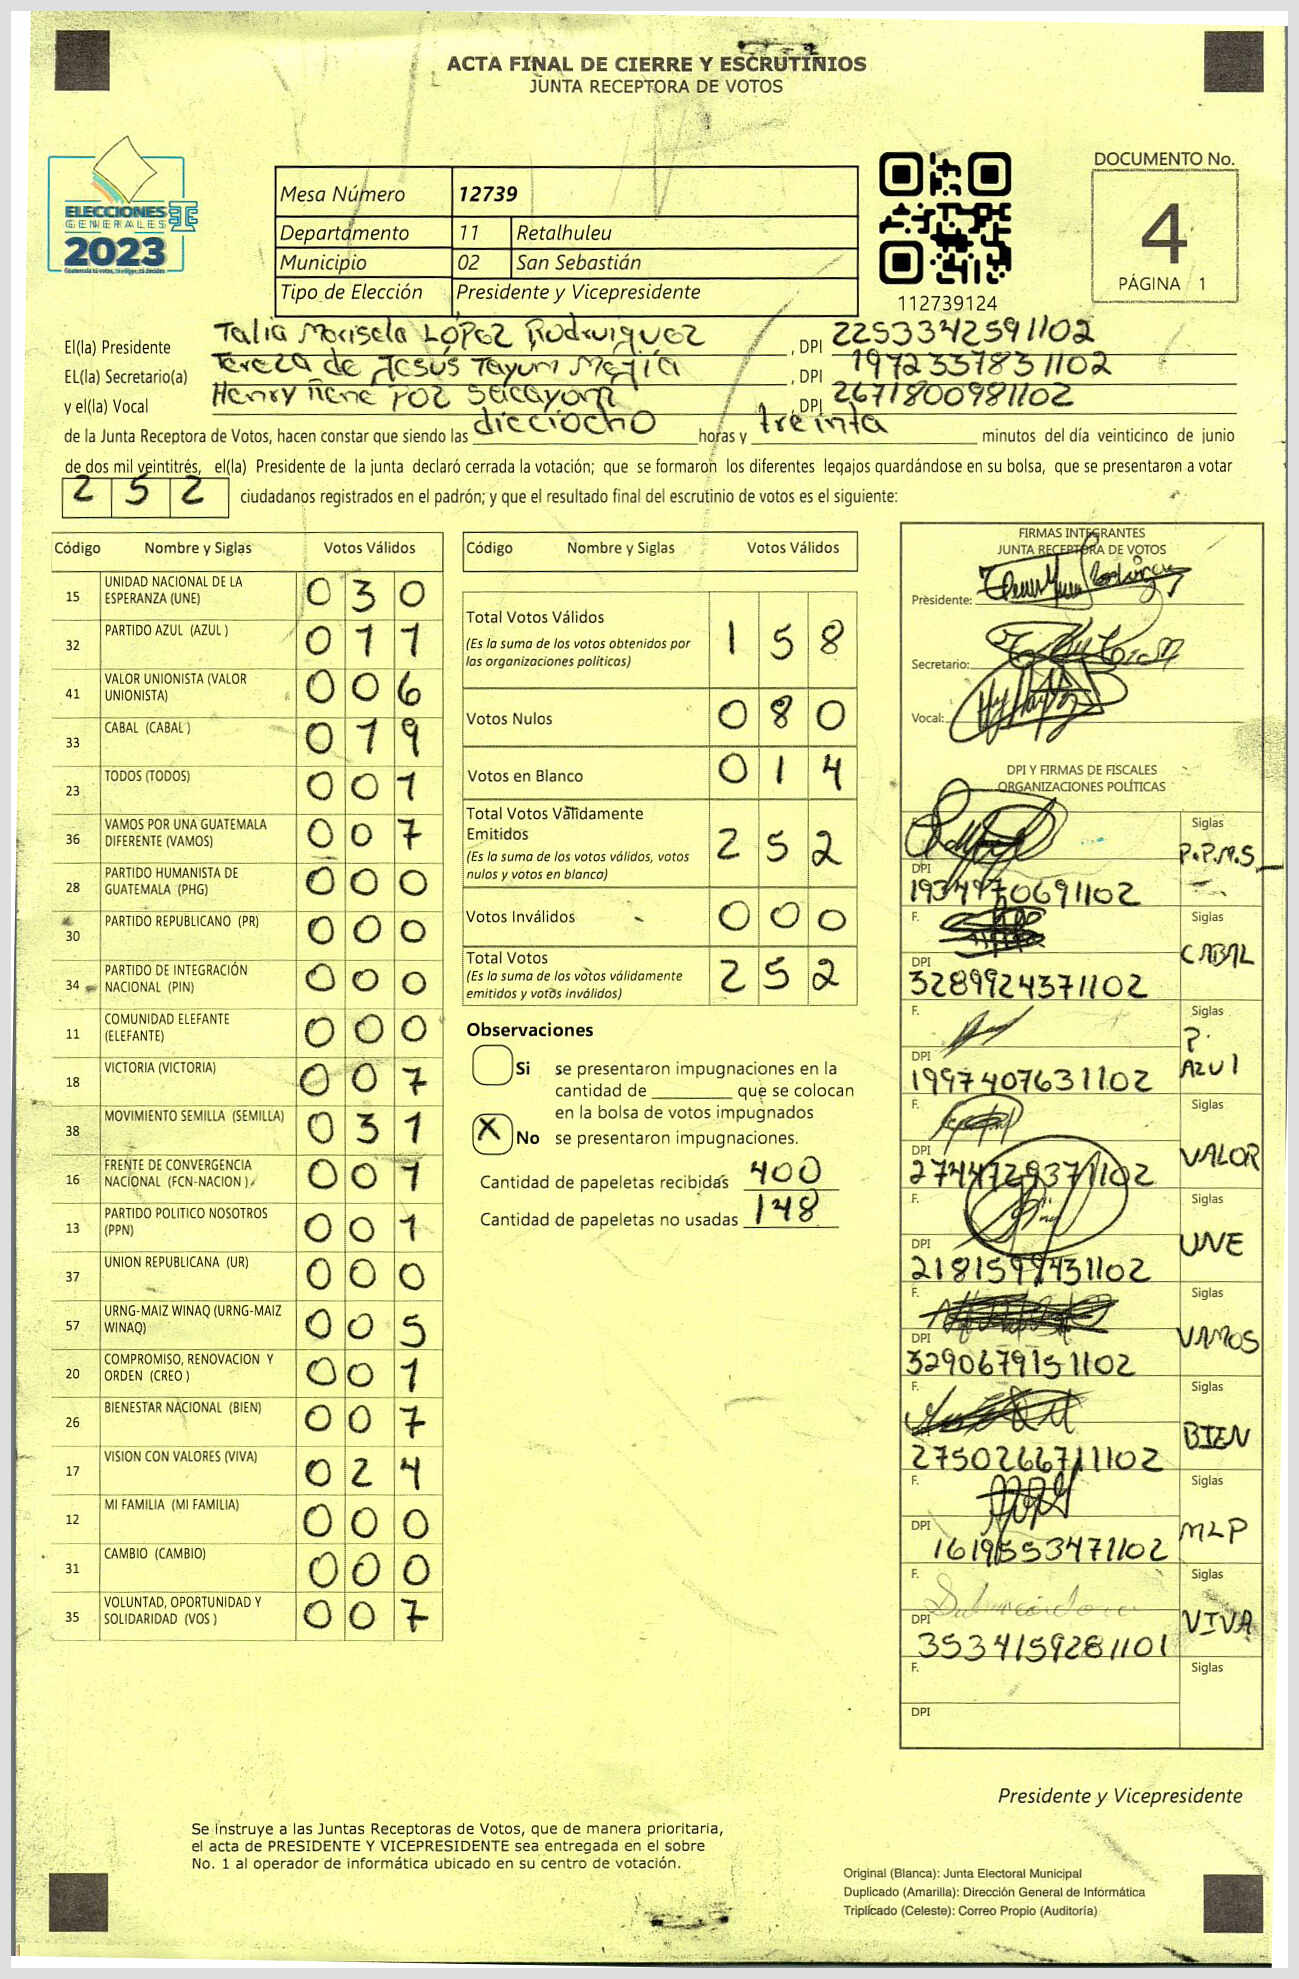 ACTA FINAL DE CIERRE Y ESCRUTINIOS
JUNTA RECEPTORA DE VOTOS
ELECCIONES
GENERALES
2023
Mesa Número 12739
Departamento 11 Retalhuleu
Municipio 02 San Sebastián
Tipo de Elección Presidente y Vicepresidente
112739124
DOCUMENTO No.
4
PÁGINA 1
El(la) Presidente Talia Marisela López Rodruiguez , DPI 2253342591102
EL(la) Secretario(a) Tereza de Jesús Tayun Mejía , DPI 1972337831102
y el(la) Vocal Henry Rene Poz , DPI 2671800981102
de la Junta Receptora de Votos, hacen constar que siendo las dieciocho horas y treinta minutos del día veinticinco de junio
de dos mil veintitrés, el(la) Presidente de la junta declaró cerrada la votación; que se formaron los diferentes legajos guardándose en su bolsa, que se presentaron a votar
252 ciudadanos registrados en el padrón; y que el resultado final del escrutinio de votos es el siguiente:
Código Nombre y Siglas Votos Válidos
15 UNIDAD NACIONAL DE LA ESPERANZA (UNE) 030
32 PARTIDO AZUL (AZUL ) 011
41 VALOR UNIONISTA (VALOR UNIONISTA) 006
33 CABAL (CABAL ) 019
23 TODOS (TODOS) 001
36 VAMOS POR UNA GUATEMALA DIFERENTE (VAMOS) 007
28 PARTIDO HUMANISTA DE GUATEMALA (PHG) 000
30 PARTIDO REPUBLICANO (PR) 000
34 PARTIDO DE INTEGRACIÓN NACIONAL (PIN) 000
11 COMUNIDAD ELEFANTE (ELEFANTE) 000
18 VICTORIA (VICTORIA) 007
38 MOVIMIENTO SEMILLA (SEMILLA) 031
16 FRENTE DE CONVERGENCIA NACIONAL (FCN-NACION ) 001
13 PARTIDO POLITICO NOSOTROS (PPN) 001
37 UNION REPUBLICANA (UR) 000
57 URNG-MAIZ WINAQ (URNG-MAIZ WINAQ) 005
20 COMPROMISO, RENOVACION Y ORDEN (CREO ) 001
26 BIENESTAR NACIONAL (BIEN) 007
17 VISION CON VALORES (VIVA) 024
12 MI FAMILIA (MI FAMILIA) 000
31 CAMBIO (CAMBIO) 000
35 VOLUNTAD, OPORTUNIDAD Y SOLIDARIDAD (VOS ) 007
Código Nombre y Siglas Votos Válidos
Total Votos Válidos 158
(Es la suma de los votos obtenidos por
las organizaciones políticas)
Votos Nulos 080
Votos en Blanco 014
Total Votos Válidamente
Emitidos 252
(Es la suma de los votos válidos, votos
nulos y votos en blanco)
Votos Inválidos 000
Total Votos 252
(Es la suma de los votos válidamente
emitidos y votos inválidos)
Observaciones
Si se presentaron impugnaciones en la
cantidad de ________ que se colocan
en la bolsa de votos impugnados
X No se presentaron impugnaciones.
Cantidad de papeletas recibidas 400
Cantidad de papeletas no usadas 148
FIRMAS INTEGRANTES
JUNTA RECEPTORA DE VOTOS
Presidente:
Secretario:
Vocal:
DPI Y FIRMAS DE FISCALES
ORGANIZACIONES POLÍTICAS
Siglas
P.P.M.S
DPI 1934970691102
F. Siglas
CABAL
DPI 3289924371102
F. Siglas
P. AZUl
DPI 1997407631102
F. Siglas
VALOR
DPI 2744729371102
F. Siglas
UNE
DPI 2181599431102
F. Siglas
VAMOS
DPI 3290679151102
F. Siglas
BIEN
2750266711102
F. Siglas
MLP
DPI 1619553471102
F. Siglas
VIVA
DPI 3534159281101
F. Siglas
DPI
Presidente y Vicepresidente
Se instruye a las Juntas Receptoras de Votos, que de manera prioritaria,
el acta de PRESIDENTE Y VICEPRESIDENTE sea entregada en el sobre
No. 1 al operador de informática ubicado en su centro de votación.
Original (Blanca): Junta Electoral Municipal
Duplicado (Amarilla): Dirección General de Informática
Triplicado (Celeste): Correo Propio (Auditoría)